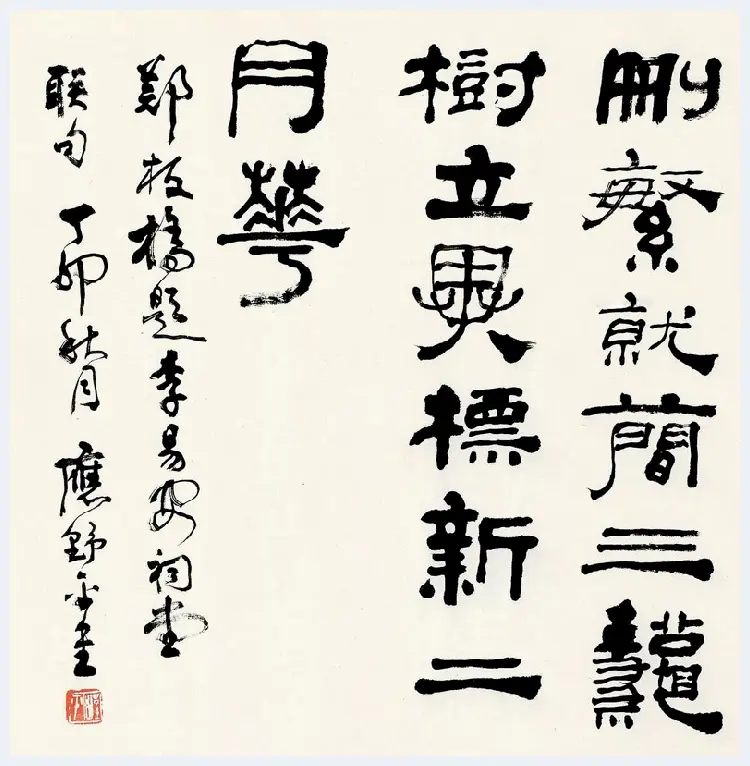 刪繁就簡三龝
樹立異標新二
月華
鄭板橋題李易安祠堂
联句 丁卯秋月 應野平書